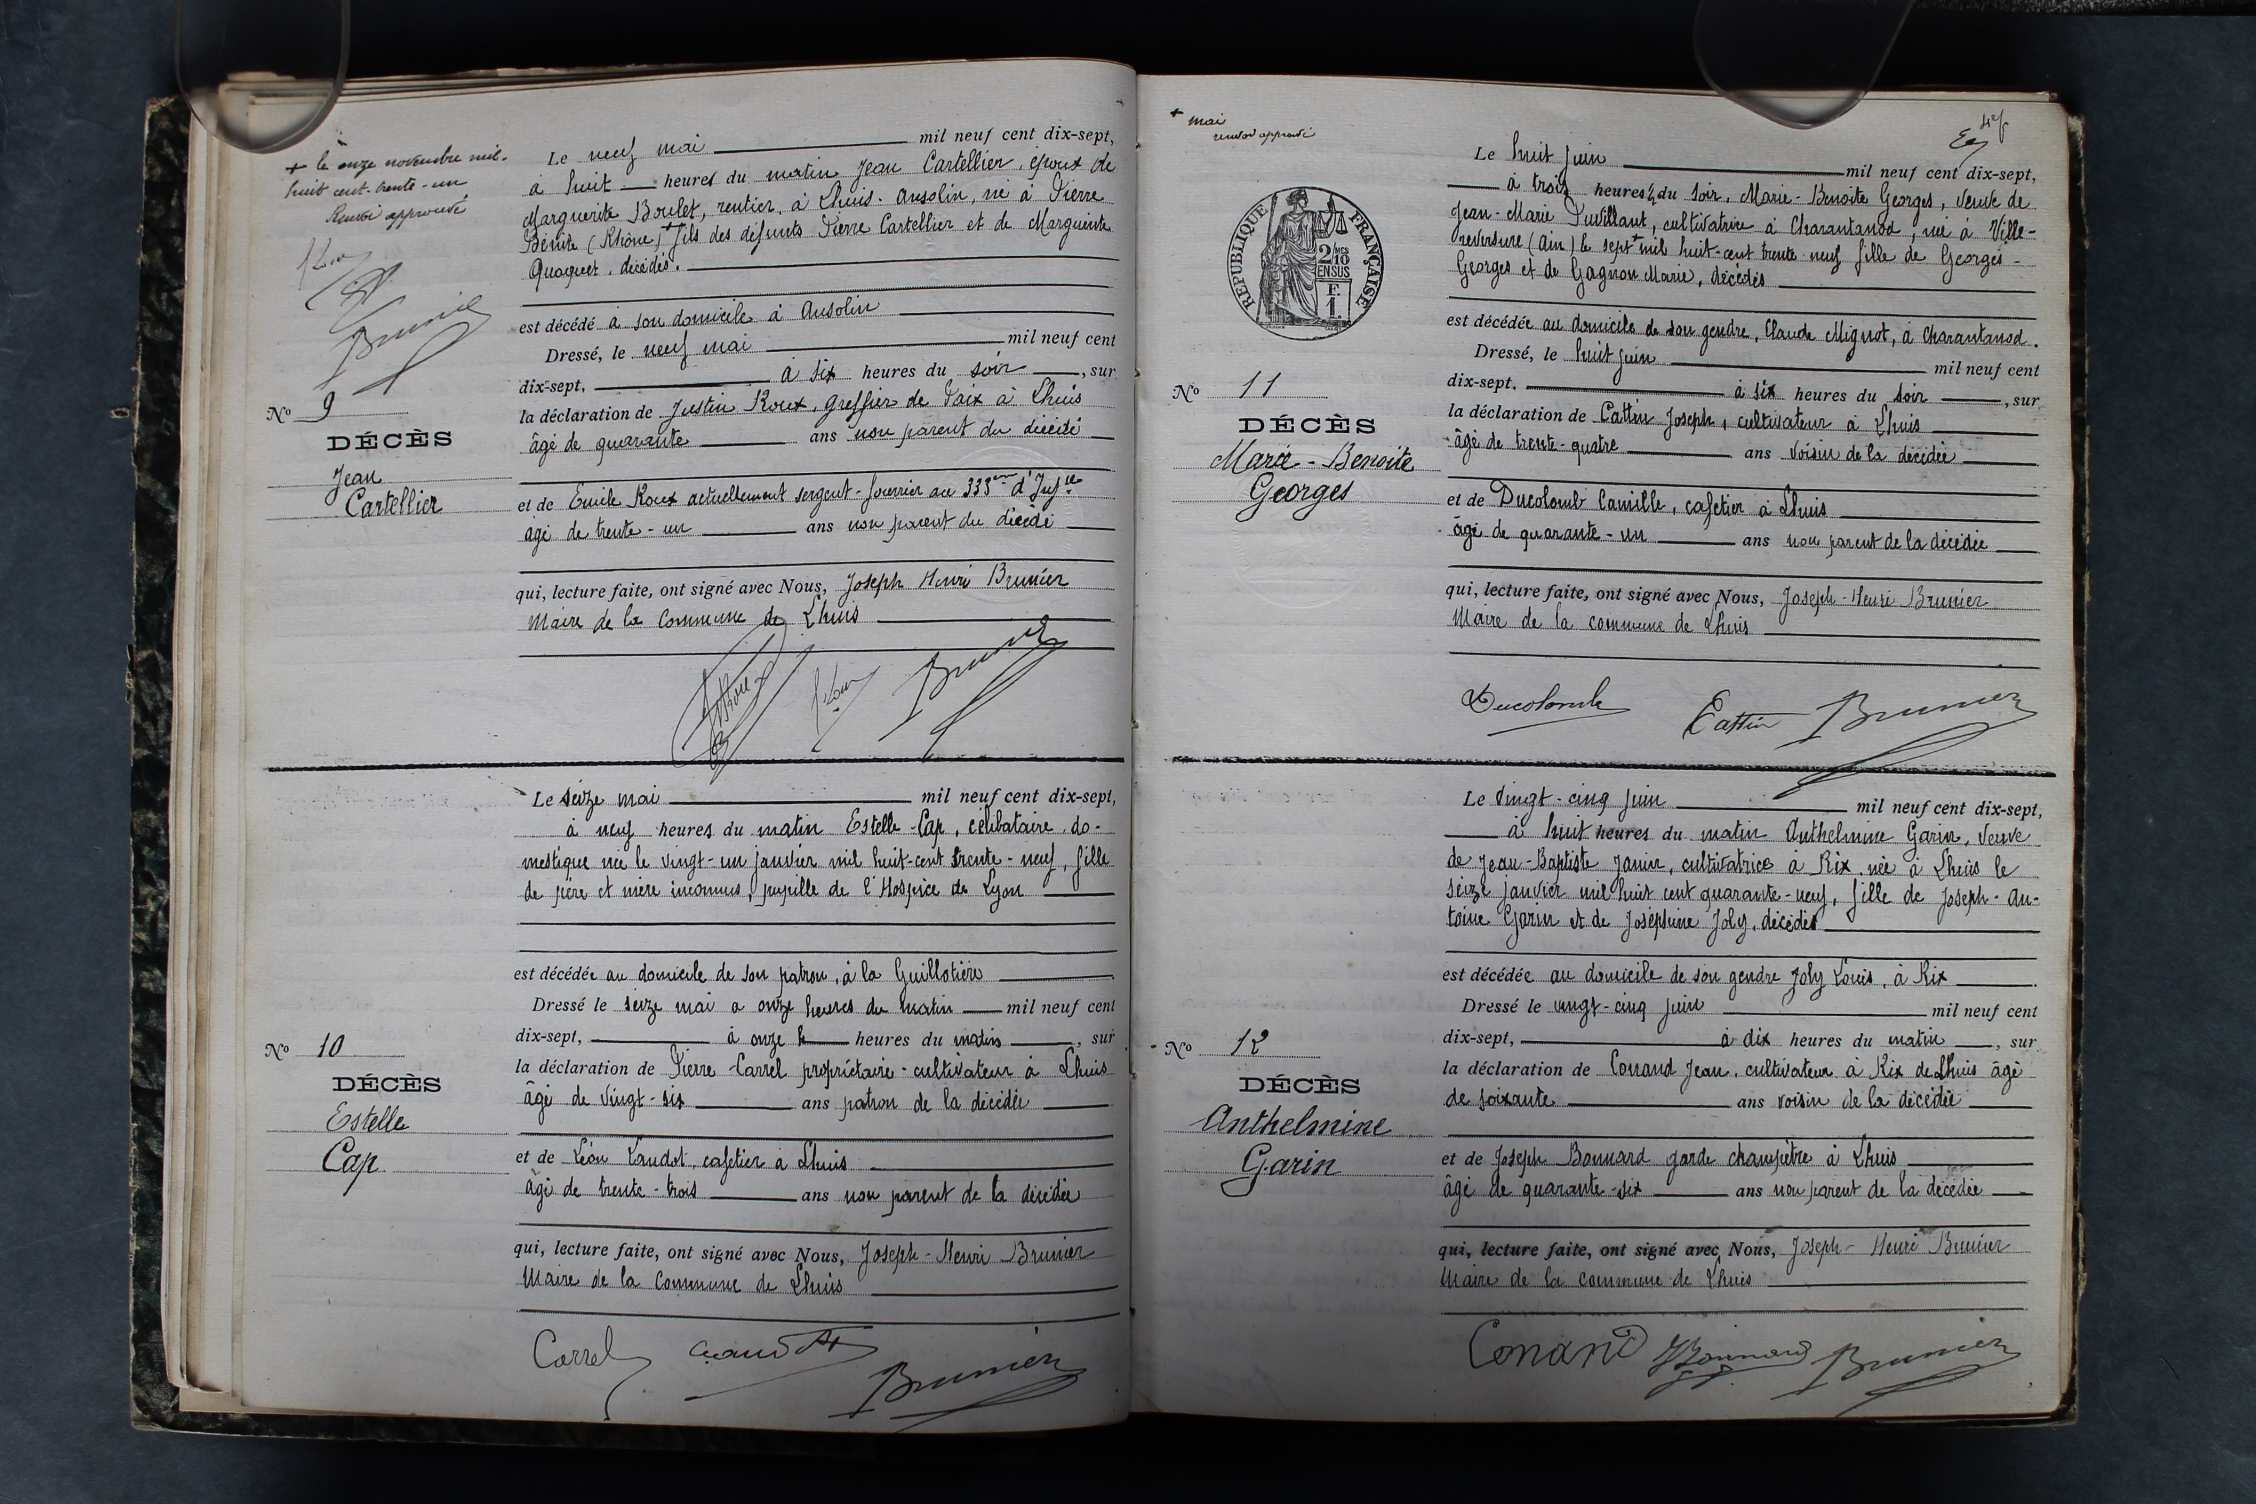 + le onze novembre mil-
huit cent-trente-un
Renvoi approuvé
Brunier
No 9
DÉCÈS
Jean
Cartellier
Le neuf mai mil neuf cent dix-sept,
à huit heures du matin Jean Cartellier, époux de
Marguerite Boulet, rentier, à Lhuis-Ansolin, né à Pierre
Bénite (Rhône) + fils des défunts Pierre Cartellier et de Marguerite
Quoquet, décédés.
est décédé à son domicile à Ansolin
Dressé, le neuf mai mil neuf cent
dix-sept, à six heures du soir, sur
la déclaration de Justin Roux, greffier de Paix à Lhuis
âgé de quarante ans non parent du décédé
et de Emile Roux actuellement sergent-fourrier au 333eme d'Infrie
agé de trente-un ans non parent du décédé
qui, lecture faite, ont signé avec Nous, Joseph Henri Brunier
Maire de la Commune de Lhuis
Roux Brunier
No 10
DÉCÈS
Estelle
Cap
Le seize mai mil neuf cent dix-sept,
à neuf heures du matin Estelle Cap, célibataire, do-
mestique née le vingt-un janvier mil huit-cent trente-neuf, fille
de père et mère inconnus, pupille de l'Hospice de Lyon
est décédée au domicile de son patron, à la Guillotière
Dressé le seize mai a onze heures du matin mil neuf cent
dix-sept, à onze h heures du matin, sur
la déclaration de Pierre Carrel propriétaire-cultivateur à Lhuis
âgé de vingt-six ans patron de la décédée
et de Léon Landot, cafetier à Lhuis
âgé de trente-trois ans non parent de la décédée
qui, lecture faite, ont signé avec Nous, Joseph-Henri Brunier
Maire de la Commune de Lhuis
Carrel Brunier
+ mai
renvoi approuvé
RÉPUBLIQUE FRANÇAISE
2/10 EN SUS
F. 1.
No 11
DÉCÈS
Marie-Benoite
Georges
Le huit juin mil neuf cent dix-sept,
à trois heures ½ du soir, Marie-Benoite Georges, veuve de
Jean-Marie Duvillant, cultivatrice à Charantanod, née à Ville-
reversure (Ain) le sept + mil huit-cent trente neuf fille de Georges-
Georges et de Gagnon Marie, décédés
est décédée au domicile de son gendre, Claude Mignot, à Charantanod.
Dressé, le huit juin mil neuf cent
dix-sept. à six heures du soir, sur
la déclaration de Cattin Joseph, cultivateur à Lhuis
âgé de trente-quatre ans voisin de la décédée
et de Ducolomb Camille, cafetier à Lhuis
âgé de quarante-un ans non parent de la décédée
qui, lecture faite, ont signé avec Nous, Joseph-Henri Brunier
Maire de la commune de Lhuis
Ducolomb Cattin Brunier
No 12
DÉCÈS
Anthelmine
Garin
Le vingt-cinq juin mil neuf cent dix-sept,
à huit heures du matin Anthelmine Garin, veuve
de Jean-Baptiste Janin, cultivatrice à Rix, née à Lhuis le
seize janvier mil huit cent quarante-neuf, fille de Joseph-An-
toine Garin et de Joséphine Joly, décédés
est décédée au domicile de son gendre Joly Louis, à Rix
Dressé le vingt-cinq juin mil neuf cent
dix-sept, à dix heures du matin, sur
la déclaration de Conand Jean, cultivateur à Rix de Lhuis âgé
de soixante ans voisin de la décédée
et de Joseph Bonnard garde champêtre à Lhuis
âgé de quarante-six ans non parent de la décédée
qui, lecture faite, ont signé avec Nous, Joseph-Henri Brunier
Maire de la commune de Lhuis
Conand JBonnard Brunier